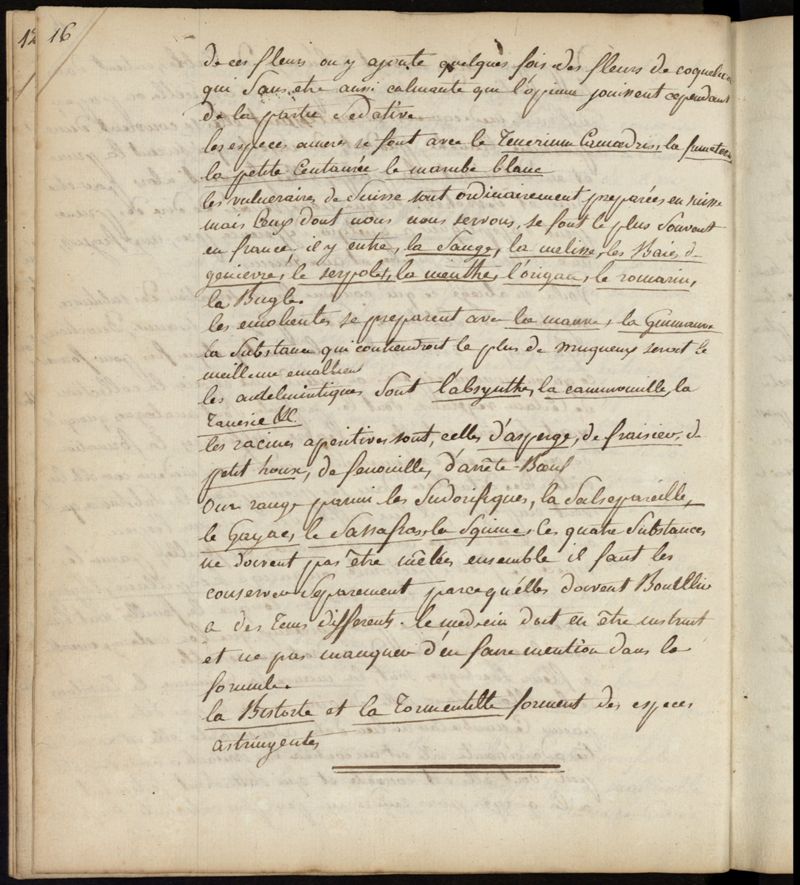 12 16
de ces fleurs on y ajoute quelques fois des fleurs de coquelu
qui sans etre aussi calmante que l'opium jouissent cependant
de la partie sedative
les especes ameres se font avec le Teucrium Camadris, la fumeterre
la petite Centaurée le marube blanc
les vulneraires de Suisse sont ordinairement preparées en suisse
mais Ceux dont nous nous servons, se font le plus souvent
en france, il y entre, la Sauge, la melisse, les Baies de
genievre, le serpolet, la menthe, l'origan, le romarin,
la Bugle.
les emolientes se preparent avec la mauve, la Guimauve
la Substance qui contiendroit le plus de muqueux seroit le
meilleur emollient
les antelmintiques sont l'absynthe, la cammomille, la
Tanesie &c
les racines aperitives sont, celles d'asperge, de fraisier, de
petit houx, de fenouille, d'arrête-Boeuf
On range parmi les Sudorifiques, la Salsepareille,
le Gayac, le Sassafras, la Squine, les quatre Substances
ne doivent pas être mêlées ensemble il faut les
conserver Separement parcequ'elles doivent Bouillir
a des Tems differents. le medecin doit en être instruit
et ne pas manquer d'en faire mention dans la
formule.
la Bistorte et la Tormentille forment des especes
astringentes